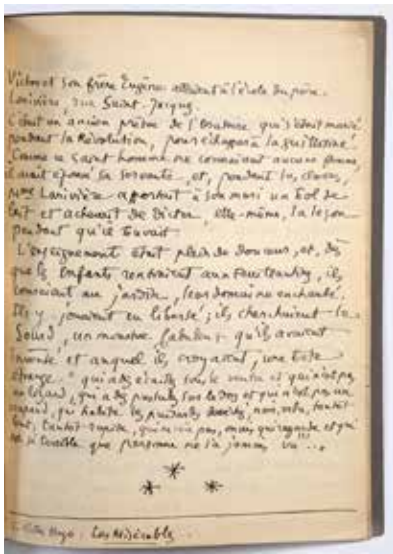 Victor et son frère Eugène allaient à l'école du père
Larivière, rue Saint-Jacques.
C'était un ancien prêtre de l'Oratoire qui s'était marié
pendant la Révolution, pour échapper à la guillotine.
Comme ce saint homme ne connaissait aucune femme,
il avait épousé sa servante, et, pendant les classes,
Mme Larivière apportait à son mari un bol de
lait et achevait de dicter, elle-même, la leçon
pendant qu'il buvait.
L'enseignement était plein de douceur, et, dès
que les Enfants rentraient aux Feuillantines, ils
couraient au jardin, leur domaine enchanté.
Ils y jouaient en liberté ; ils cherchaient le
Sourd, un monstre fabuleux qu'ils avaient
inventé et auquel ils croyaient, une bête
étrange " qui a des écailles sous le ventre et qui n'est pas
un lézard, qui a des pustules sur le dos et qui n'est pas un
crapaud, qui habite les
noir, velu, tantôt
lent, tantôt rapide, qui ne crie pas, mais qui regarde et qui
est si terrible que personne ne l'a jamais vu
Victor Hugo : Les Misérables.